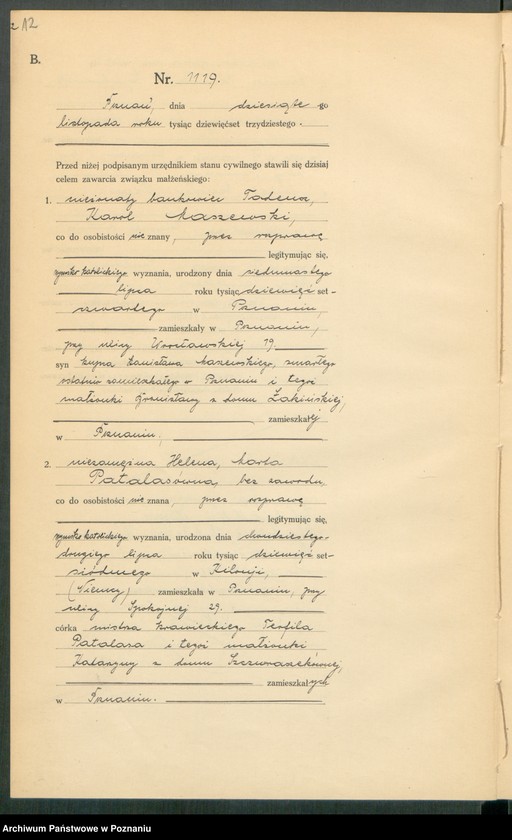 212
B.
Nr. 1119.
Poznań, dnia dziesiąte go
listopada roku tysiąc dziewięćset trzydziestego.
Przed niżej podpisanym urzędnikiem stanu cywilnego stawili się dzisiaj
celem zawarcia związku małżeńskiego:
1. nieżonaty bankowiec Tadeusz,
Karol Maszewski,
co do osobistości nie znany, przez rozprawę
legitymując się,
rzymsko katolickiego wyznania, urodzony dnia siedemnastego
lipca roku tysiąc dziewięć set-
czwartego w Poznaniu,
zamieszkały w Poznaniu,
przy ulicy Wrocławskiej 19.
syn kupca Stanisława Maszewskiego, zmarłego
ostatnio zamieszkałego w Poznaniu i tegoż
małżonki Bronisławy z domu
zamieszkałej
w Poznaniu.
2. niezamężna Helena, Marta
Patalasówna, bez zawodu,
co do osobistości nie znana, przez rozprawę
legitymując się,
rzymsko katolickiego wyznania, urodzona dnia dwudziestego-
drugiego lipca roku tysiąc dziewięć set-
siódmego w Kilonji,
(Niemcy) zamieszkała w Poznaniu, przy
ulicy Spokojnej 29.
córka mistrza krawieckiego Teofila
Patalasa i tegoż małżonki
Katarzyny z domu
zamieszkałych
w Poznaniu.
Archiwum Państwowe w Poznaniu